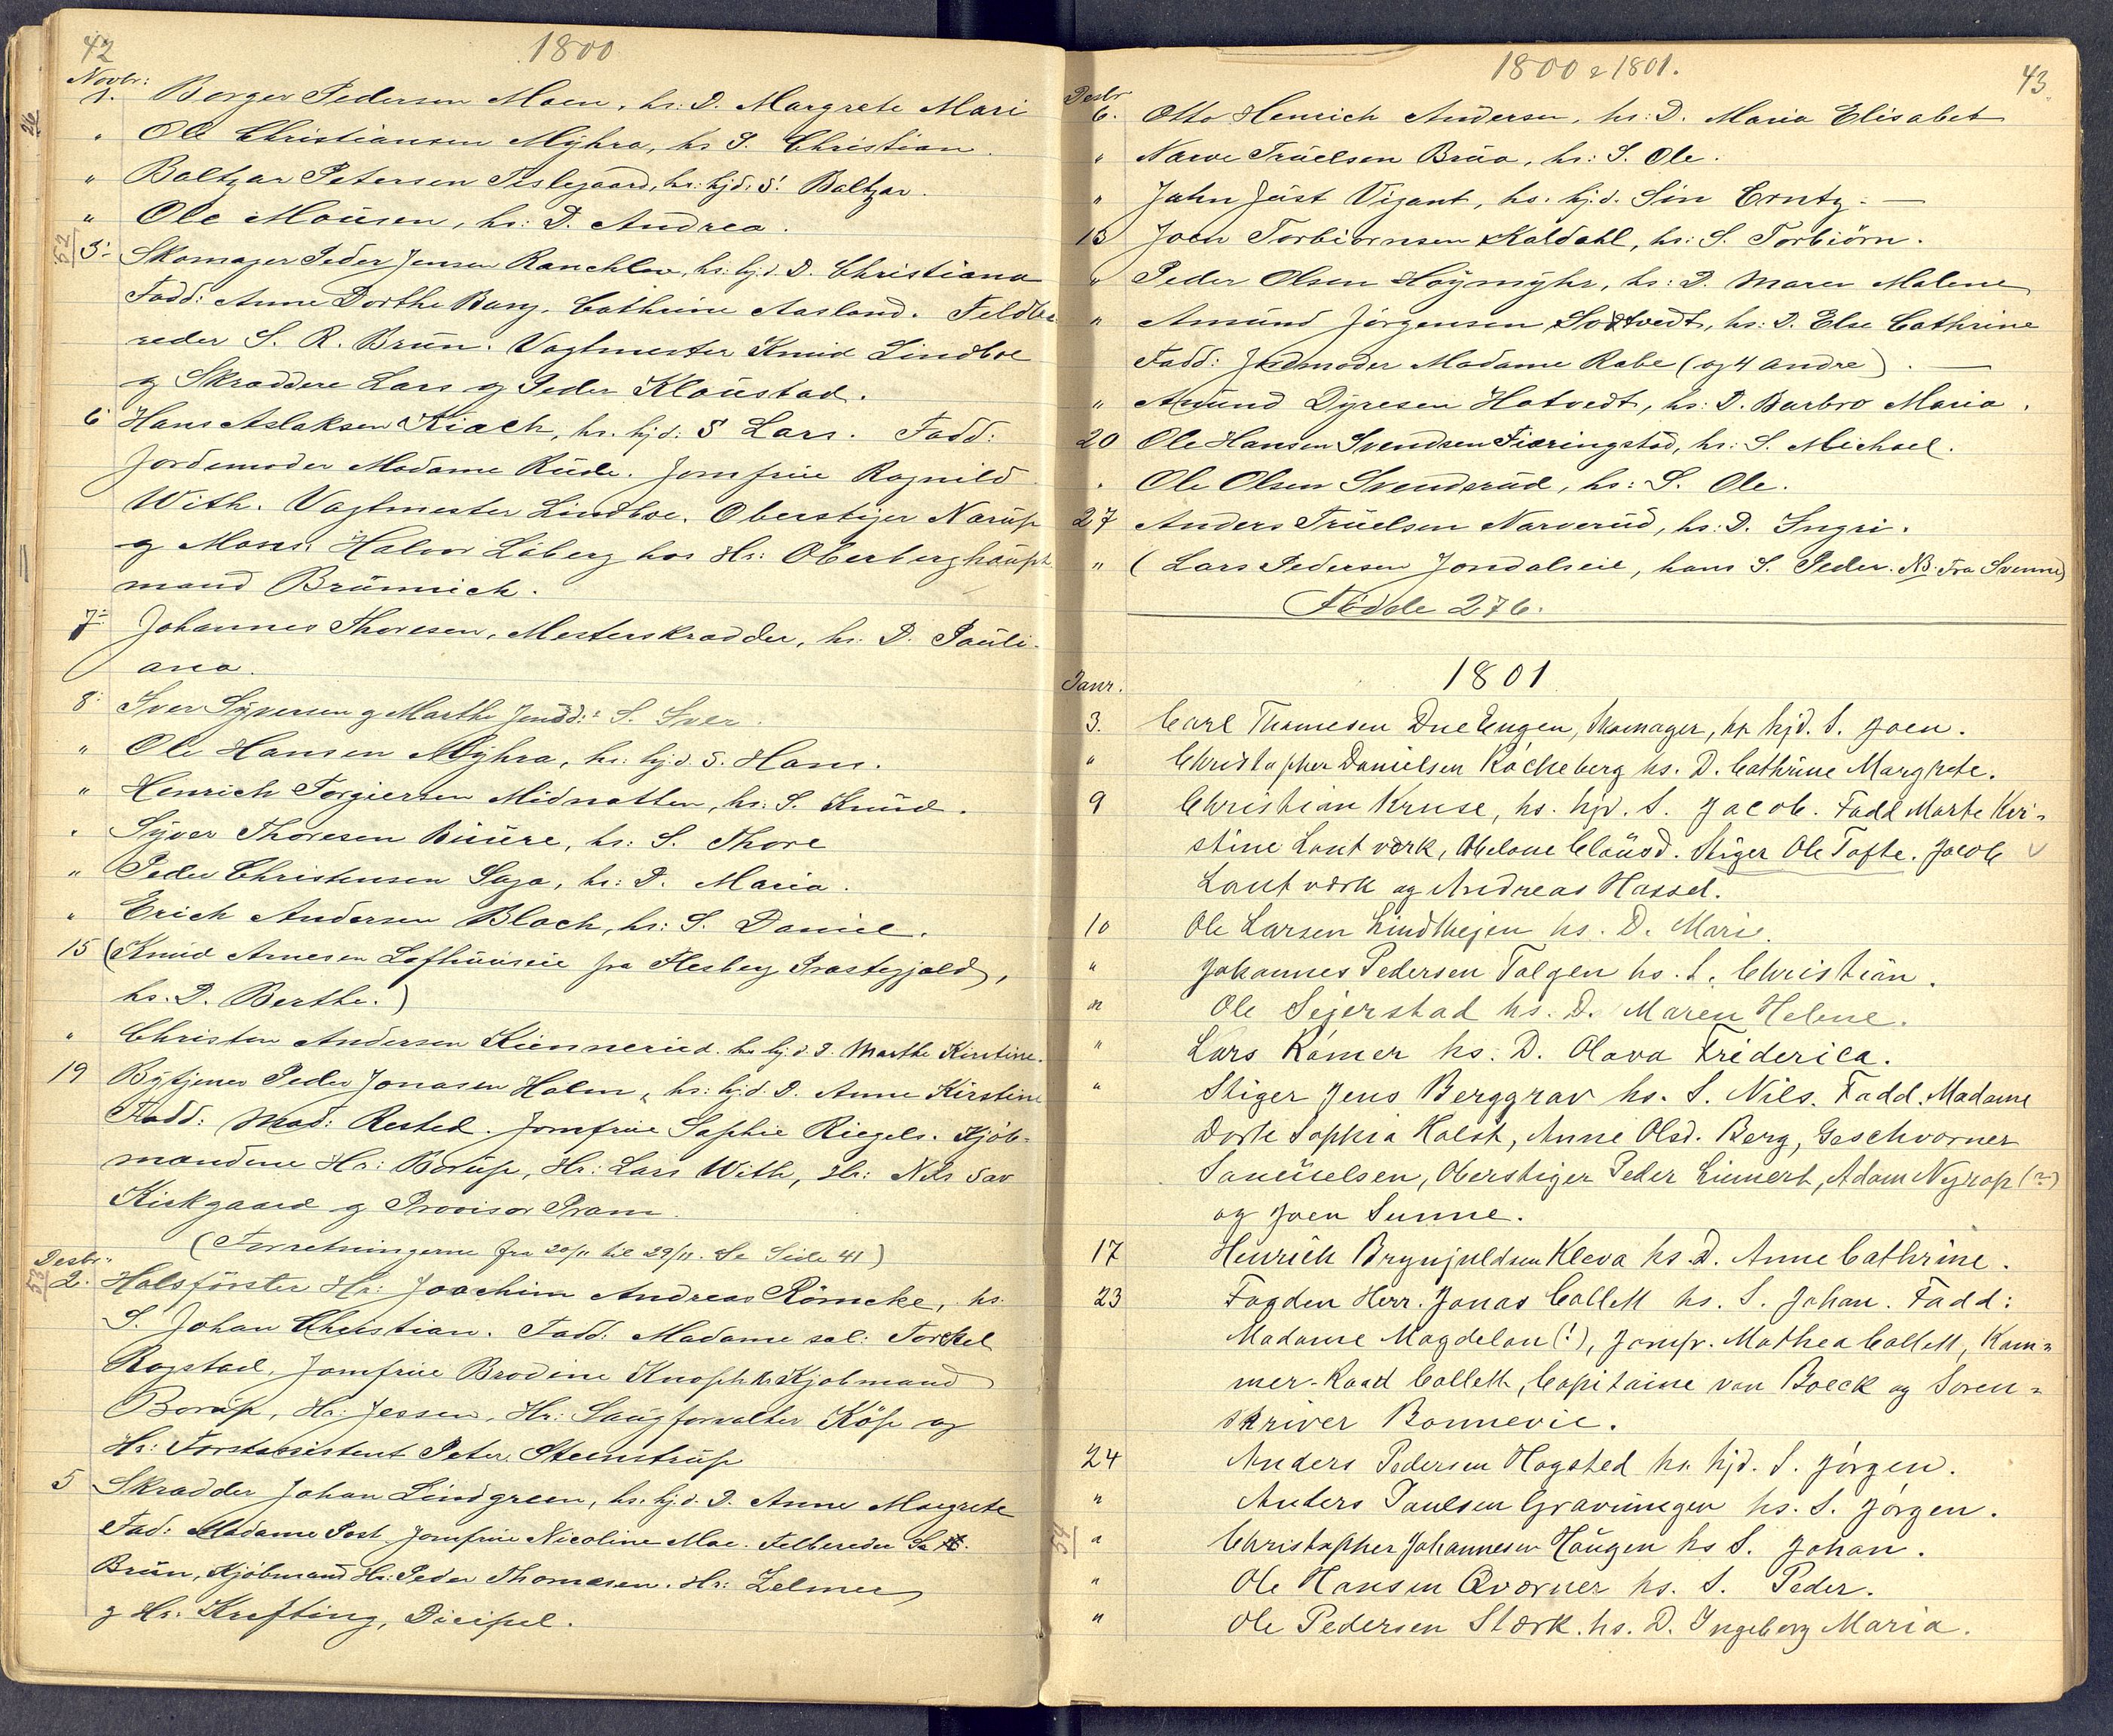 42
1800
Novbr:
1. Borger Pedersen Moen, hs: D. Margrete Mari
" Ole Christiansen Mÿhra, hs S. Christian.
" Baltzar Petersen Teslegaard, hs: hjd. S. Baltzar.
" Ole Mousen, hs: D. Andrea.
52
3: Skomager Peder Jensen Ranchlev, hs: hjd. D. Christiana
Fadd: Anne Dorthe Barg. Cathrine Aasland. Feldbe-
reder S. R. Brün. Vagtmester Knud Lindboe
og Skreddere Lars og Peder Kloustad.
6 Hans Aslaksen Kiach, hs. hjd: S Lars. Fadd:
Jordemoder Madame Rude. Jomfrue Ragnild
With. Vagtmester Lindboe. Oberstiger Narup
og Mons. Halvor Liberg hos Hr: Oberberghaupt
mand Brünnich.
7: Johannes Thoresen, Mesterskrædder, hs. D. Pauli-
ana.
8: Iver Syversen og Marthe Jensd: S. Iver.
" Ole Hansen Mÿhra, hs: hjd. S. Hans.
" Henrich Torgiersen Midnatten, hs: S. Knud.
" Syver Thoresen Buure, hs: S. Thore
" Peder Christensen Saga, hs: D. Maria.
" Erich Andersen Bloch, hs: S. Daniel.
15 (Knud Arnesen Lofthuuseie fra Flesberg Præstegjæld,
hs. D. Berthe.)
" Christen Andersen Kiennerud. hs hjd. D. Marthe Kirstine.
19 Bytjener Peder Jonasen Holm, hs: hjd. D. Anne Kirstine
Fadd: Mad: Rested. Jomfrue Sophie Riegels. Kjøb-
mændene Hr: Borup, Hr: Lars With, Hr: Nils Sav
Kirkgaard og Provisor Pram.
(Forretningerne fra 20/11 til 29/11. Se Side 41)
Desbr:
53
2. Holsförster Hr: Joachim Andreas Römcke, hs.
S. Johan Christian. Fadd: Madame sal: Torckel
Rogstad, Jomfrue Brodine Knoph. Kjøbmand
Borup, Hr: Jessen, Hr: Saugforvalter Köp og
Hr: Forstassistent Peter Steenstrup
5 Skrædder Johan Lindgreen, hs. hjd. D. Anne Margrete
Fad: Madame Post. Jomfrue Nicoline Moe. Felbereder
Brün, Kjøbmand Hr: Peder Thomesen. Hr: Zelmer
og Hr. Krefting, Dicipel.
1800 & 1801.
43
Desbr
6. Otto Henrich Andersen, hs: D. Maria Elisabet
" Narve Truelsen Brua, hs: S. Ole.
" Jahn Just Vigant, hs. hjd. Sön Erntz. —
13 Joen Torbiornsen Kaldahl, hs: S. Torbiörn.
" Peder Olsen Höymyhr, hs: D. Maren Malene
" Amund Jörgensen Sodtvedt, hs: D. Else Cathrine
Fadd: Jordmoder Madame Rabe (og 4 andre). —
" Amund Dyresen Hotvedt, hs: D. Barbro Maria.
20 Ole Hansen Svendsen Fiæringstad, hs: S. Michael.
" Ole Olsen Svendsrud, hs: S. Ole.
27 Anders Truelsen Narverud, hs: D. Ingri.
" (Lars Pedersen Jondalseie, hans S. Peder. NB. Fra Svenne)
Födde 276.
1801
Janr.
3. Carl Thomesen Due Engen, Skomager, hs hjd. S. Joen.
" Christopher Danielsen Kackeberg hs. D. Cathrine Margrete.
9 Christian Kruse, hs. hjd. S. Jacob. Fadd Marte Kir-
stine Lantværk, Abelone Clausd. Stiger Ole Tofte. Jacob
Lantværk og Andreas Hassel.
10 Ole Larsen Lindthejen hs. D. Mari.
" Johannes Pedersen Talgen hs. S. Christian.
" Ole Sejerstad hs. D. Maren Helene.
" Lars Römer hs. D. Olava Friderica.
" Stiger Jens Berggrav hs. S. Nils. Fadd. Madame
Dorte Sophia Holst, Anne Olsd. Berg, Geschvorner
Samuelsen, Oberstiger Peder Limert, Adam Nyrop (?)
og Joen Sunne.
17 Henrich Brynjuldsen Kleva hs. D. Anne Cathrine.
23 Fogden Herr. Jonas Collett hs. S. Johan. Fadd:
Madame Magdelon (!), Jomfr. Mathea Collett, Kam-
mer-Raad Collett, Capitaine von Boeck og Soren-
skriver Bonnevie.
24 Anders Pedersen Hogsted hs. hjd. S. Jörgen.
" Anders Paulsen Gravningen hs. S. Jörgen.
" Christopher Johannesen Haugen hs S. Johan.
" Ole Hansen Qværner hs. S. Peder.
" Ole Pedersen Stærk. hs. D. Ingeborg Maria.